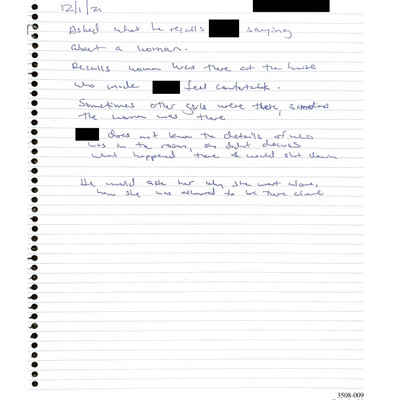 12/1/21
Asked what he recalls saying
about a woman.
Recalls woman was there at the house
who made feel comfortable.
Sometimes other girls were there, sometimes
the woman was there
does not know the details of who
was in the room, she didn't discuss
what happened there & would shut down
He would ask her why she went alone,
how she was allowed to be there alone
3508-009